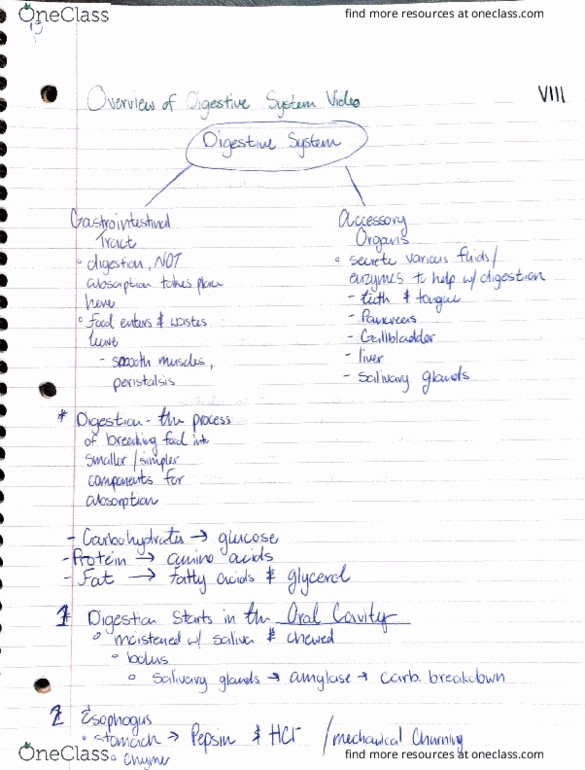 OneClass
find more resources at oneclass.com
Overview of Digestive System Video
VIII
Digestive System
Gastrointestinal
Tract
° digestion, NOT
absorption takes place
here
° Food enters & wastes
leave
- smooth muscles,
peristalsis
Accessory
Organs
° secrete various fluids/
enzymes to help w/ digestion
- teeth & tongue
- Pancreas
- Gallbladder
- liver
- Salivary glands
* Digestion - the process
of breaking food into
smaller/simpler
components for
absorption
- Carbohydrates → glucose
- Protein → amino acids
- Fat → fatty acids & glycerol
1 Digestion starts in the Oral Cavity
° moistened w/ saliva & chewed
° bolus
° Salivary glands → amylase → carb. breakdown
2 Esophogus
• stomach → Pepsin & HCl /mechanical Churning
° chyme
OneClass
find more resources at oneclass.com